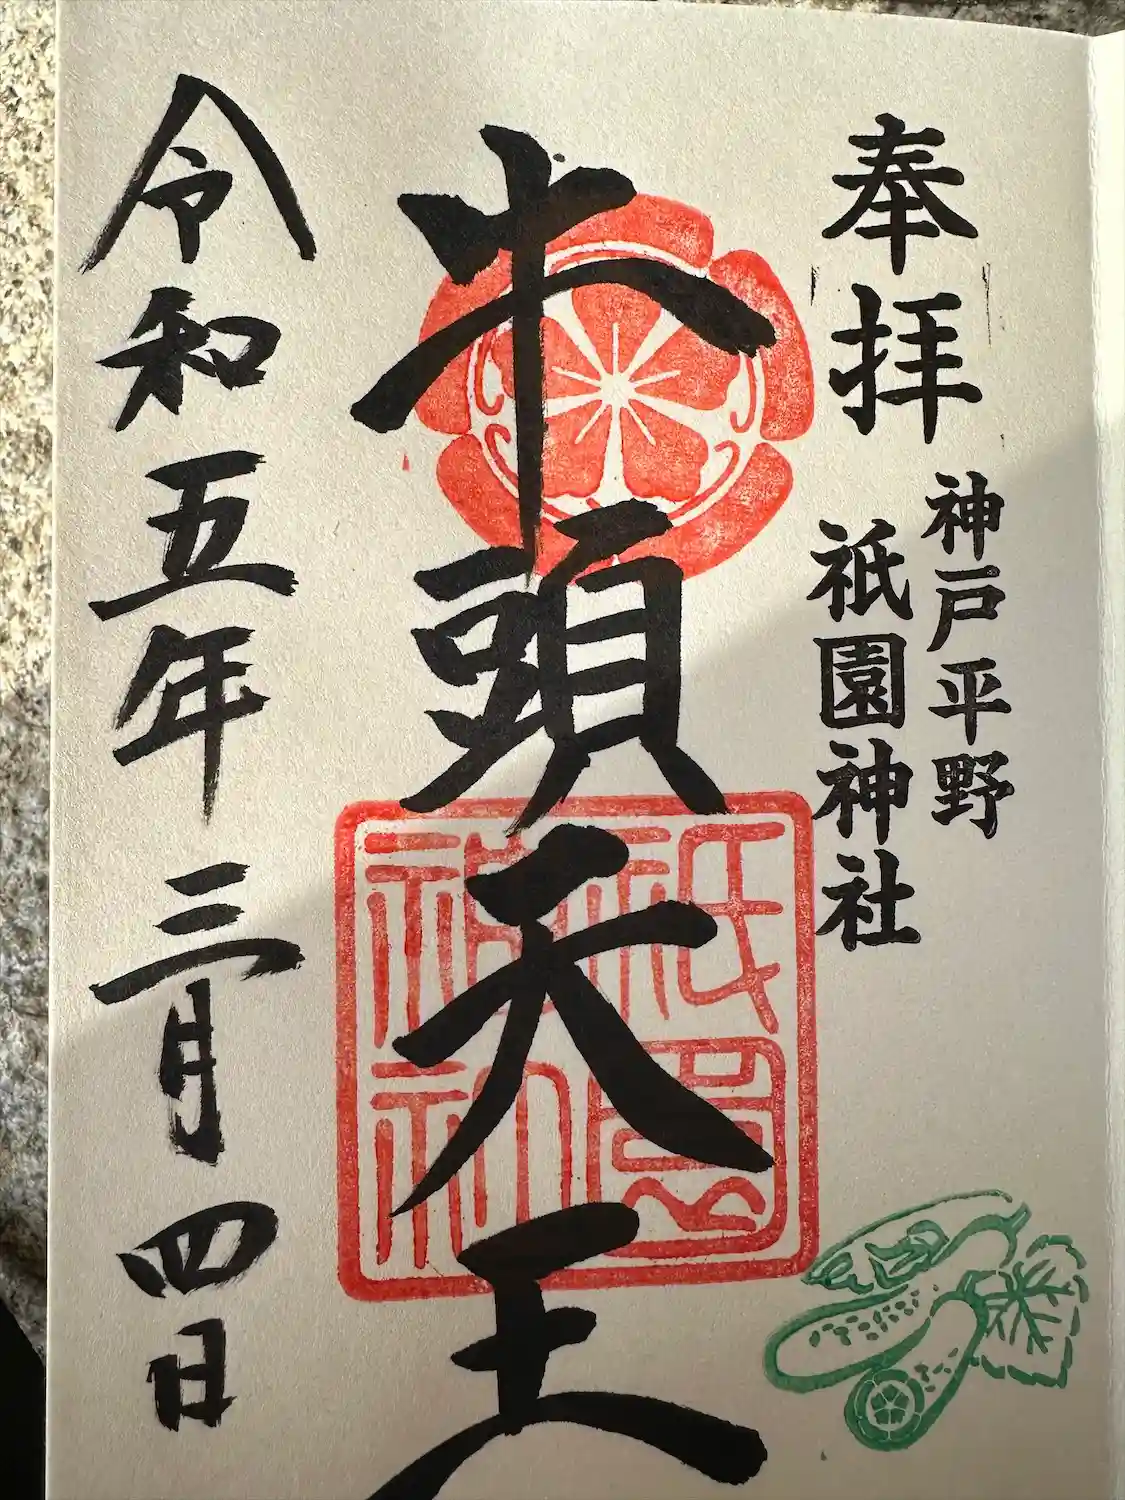 奉拝
神戸平野
祇園神社
牛頭天王
祇園
神社
令和五年三月四日